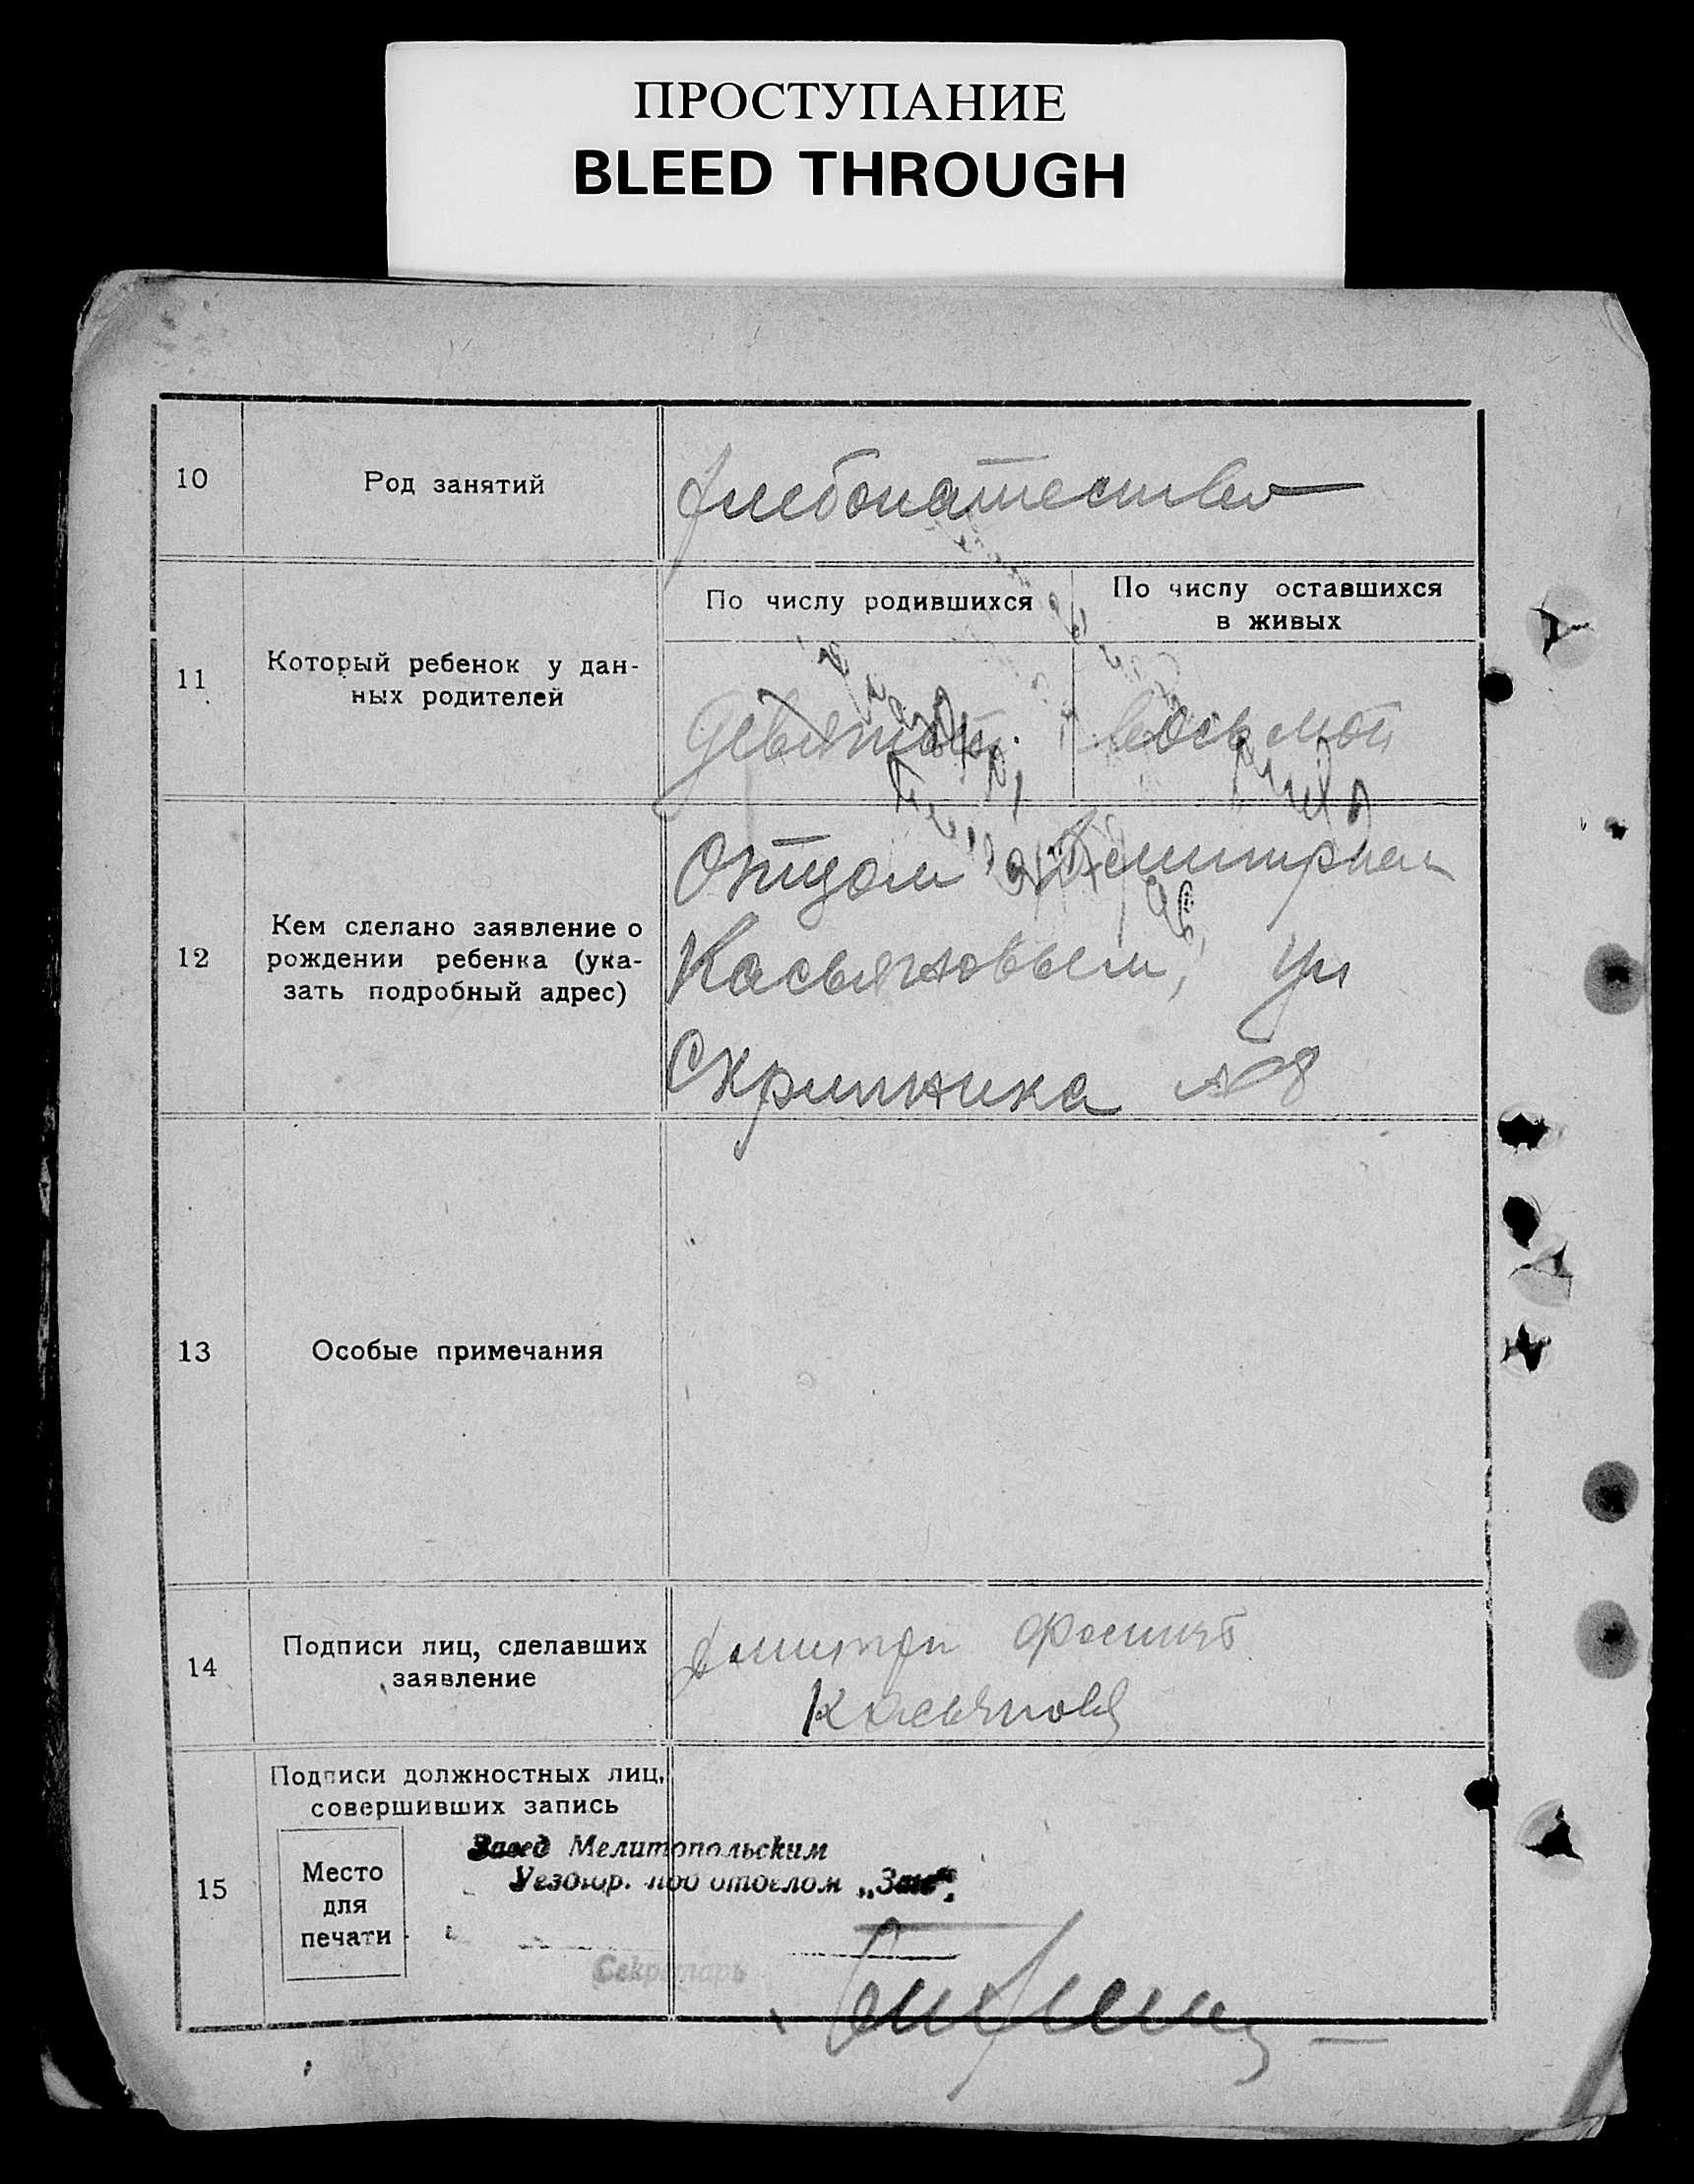 ПРОСТУПАНИЕ
BLEED THROUGH
10
Род занятий
хлебопашество
11
Который ребенок у дан-
ных родителей
По числу родившихся
По числу оставшихся
в живых
Девятый
восьмой
12
Кем сделано заявление о
рождении ребенка (ука-
зать подробный адрес)
Отцом Дмитрием
Касьяновым, ул
Скрипника № 8
13
Особые примечания
14
Подписи лиц, сделавших
заявление
Дмитри
Касьянов
15
Подписи должностных лиц,
совершивших запись
Место
для
печати
Завед Мелитопольским
под отделом „Загс“.
Секретарь